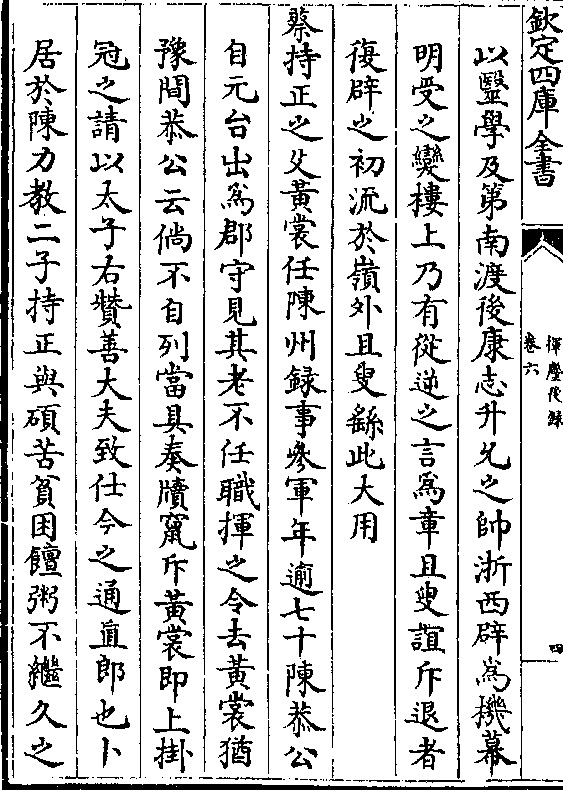 欽定四庫全書
揮麈後録
卷六
四
以毉學及第南渡後康志升允之帥浙西辟爲機幕
明受之變樓上乃有從逆之言爲章且叟誼斥退者
復辟之初流於嶺外且叟繇此大用
蔡持正之父黄裳任陳州録事參軍年逾七十陳恭公
自元台出爲郡守見其老不任職揮之令去黄裳猶
豫間恭公云倘不自列當具奏牘竄斥黄裳即上掛
冠之請以太子右贊善大夫致仕今之通直郎也卜
居於陳力教二子持正與碩苦貧困饘粥不繼久之